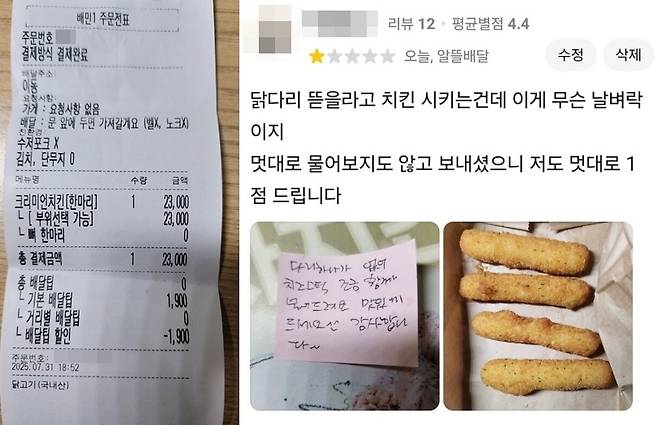 배민1 주문전표
주문번호
결제방식 결제완료
배달주소:
이동
요청사항:
가게 : 요청사항 없음
배달 : 문 앞에 두면 가져갈게요 (벨X, 노크X)
친환경:
수저포크 X
김치, 단무지 O
메뉴명 수량 금액
크리미언치킨[한마리] 1 23,000
└ [ 부위선택 가능] 23,000
└ 뼈 한마리 0
총 결제금액 1 23,000
총 배달팁 0
└ 기본 배달팁 1,900
└ 거리별 배달팁 0
└ 배달팁 할인 -1,900
주문번호:
2025.07.31 18:52
닭고기(국내산)
리뷰 12 · 평균별점 4.4
오늘, 알뜰배달
수정 삭제
닭다리 뜯을라고 치킨 시키는건데 이게 무슨 날벼락
이지
멋대로 물어보지도 않고 보내셨으니 저도 멋대로 1
점 드립니다
다리하나가 없어
치즈스틱 조금 함께
보내드려요 맛있게
드세요 감사합니
다~